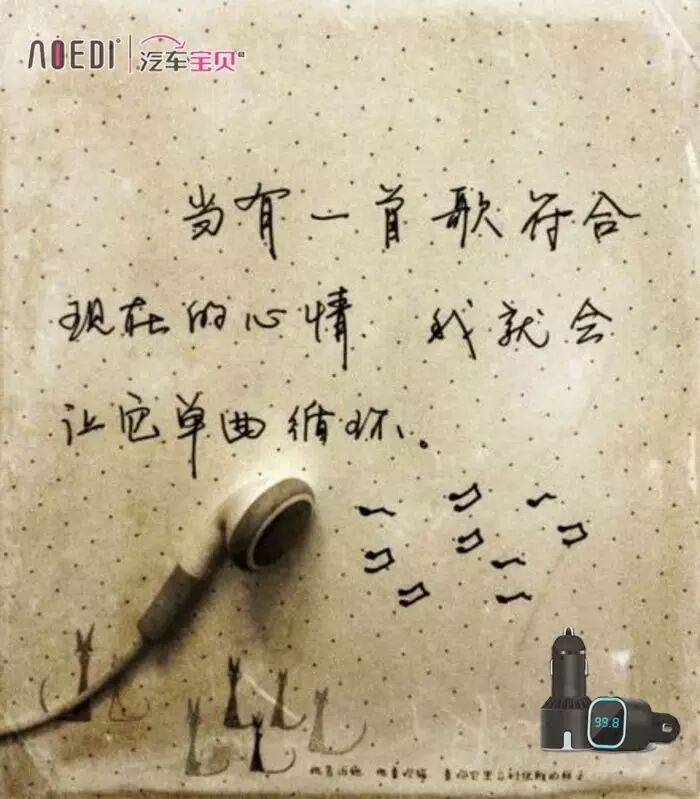 AOEDI 汽车宝贝
当有一首歌符合
现在的心情 我就会
让它单曲循环。
99.8